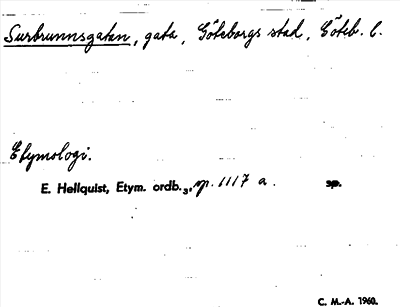 Surbrunnsgatan, gata, Göteborgs stad, Göteb. l.
Etymologi.
E. Hellquist, Etym. ordb.₃, sp. 1117 a. sp.
C. M.-A. 1960.